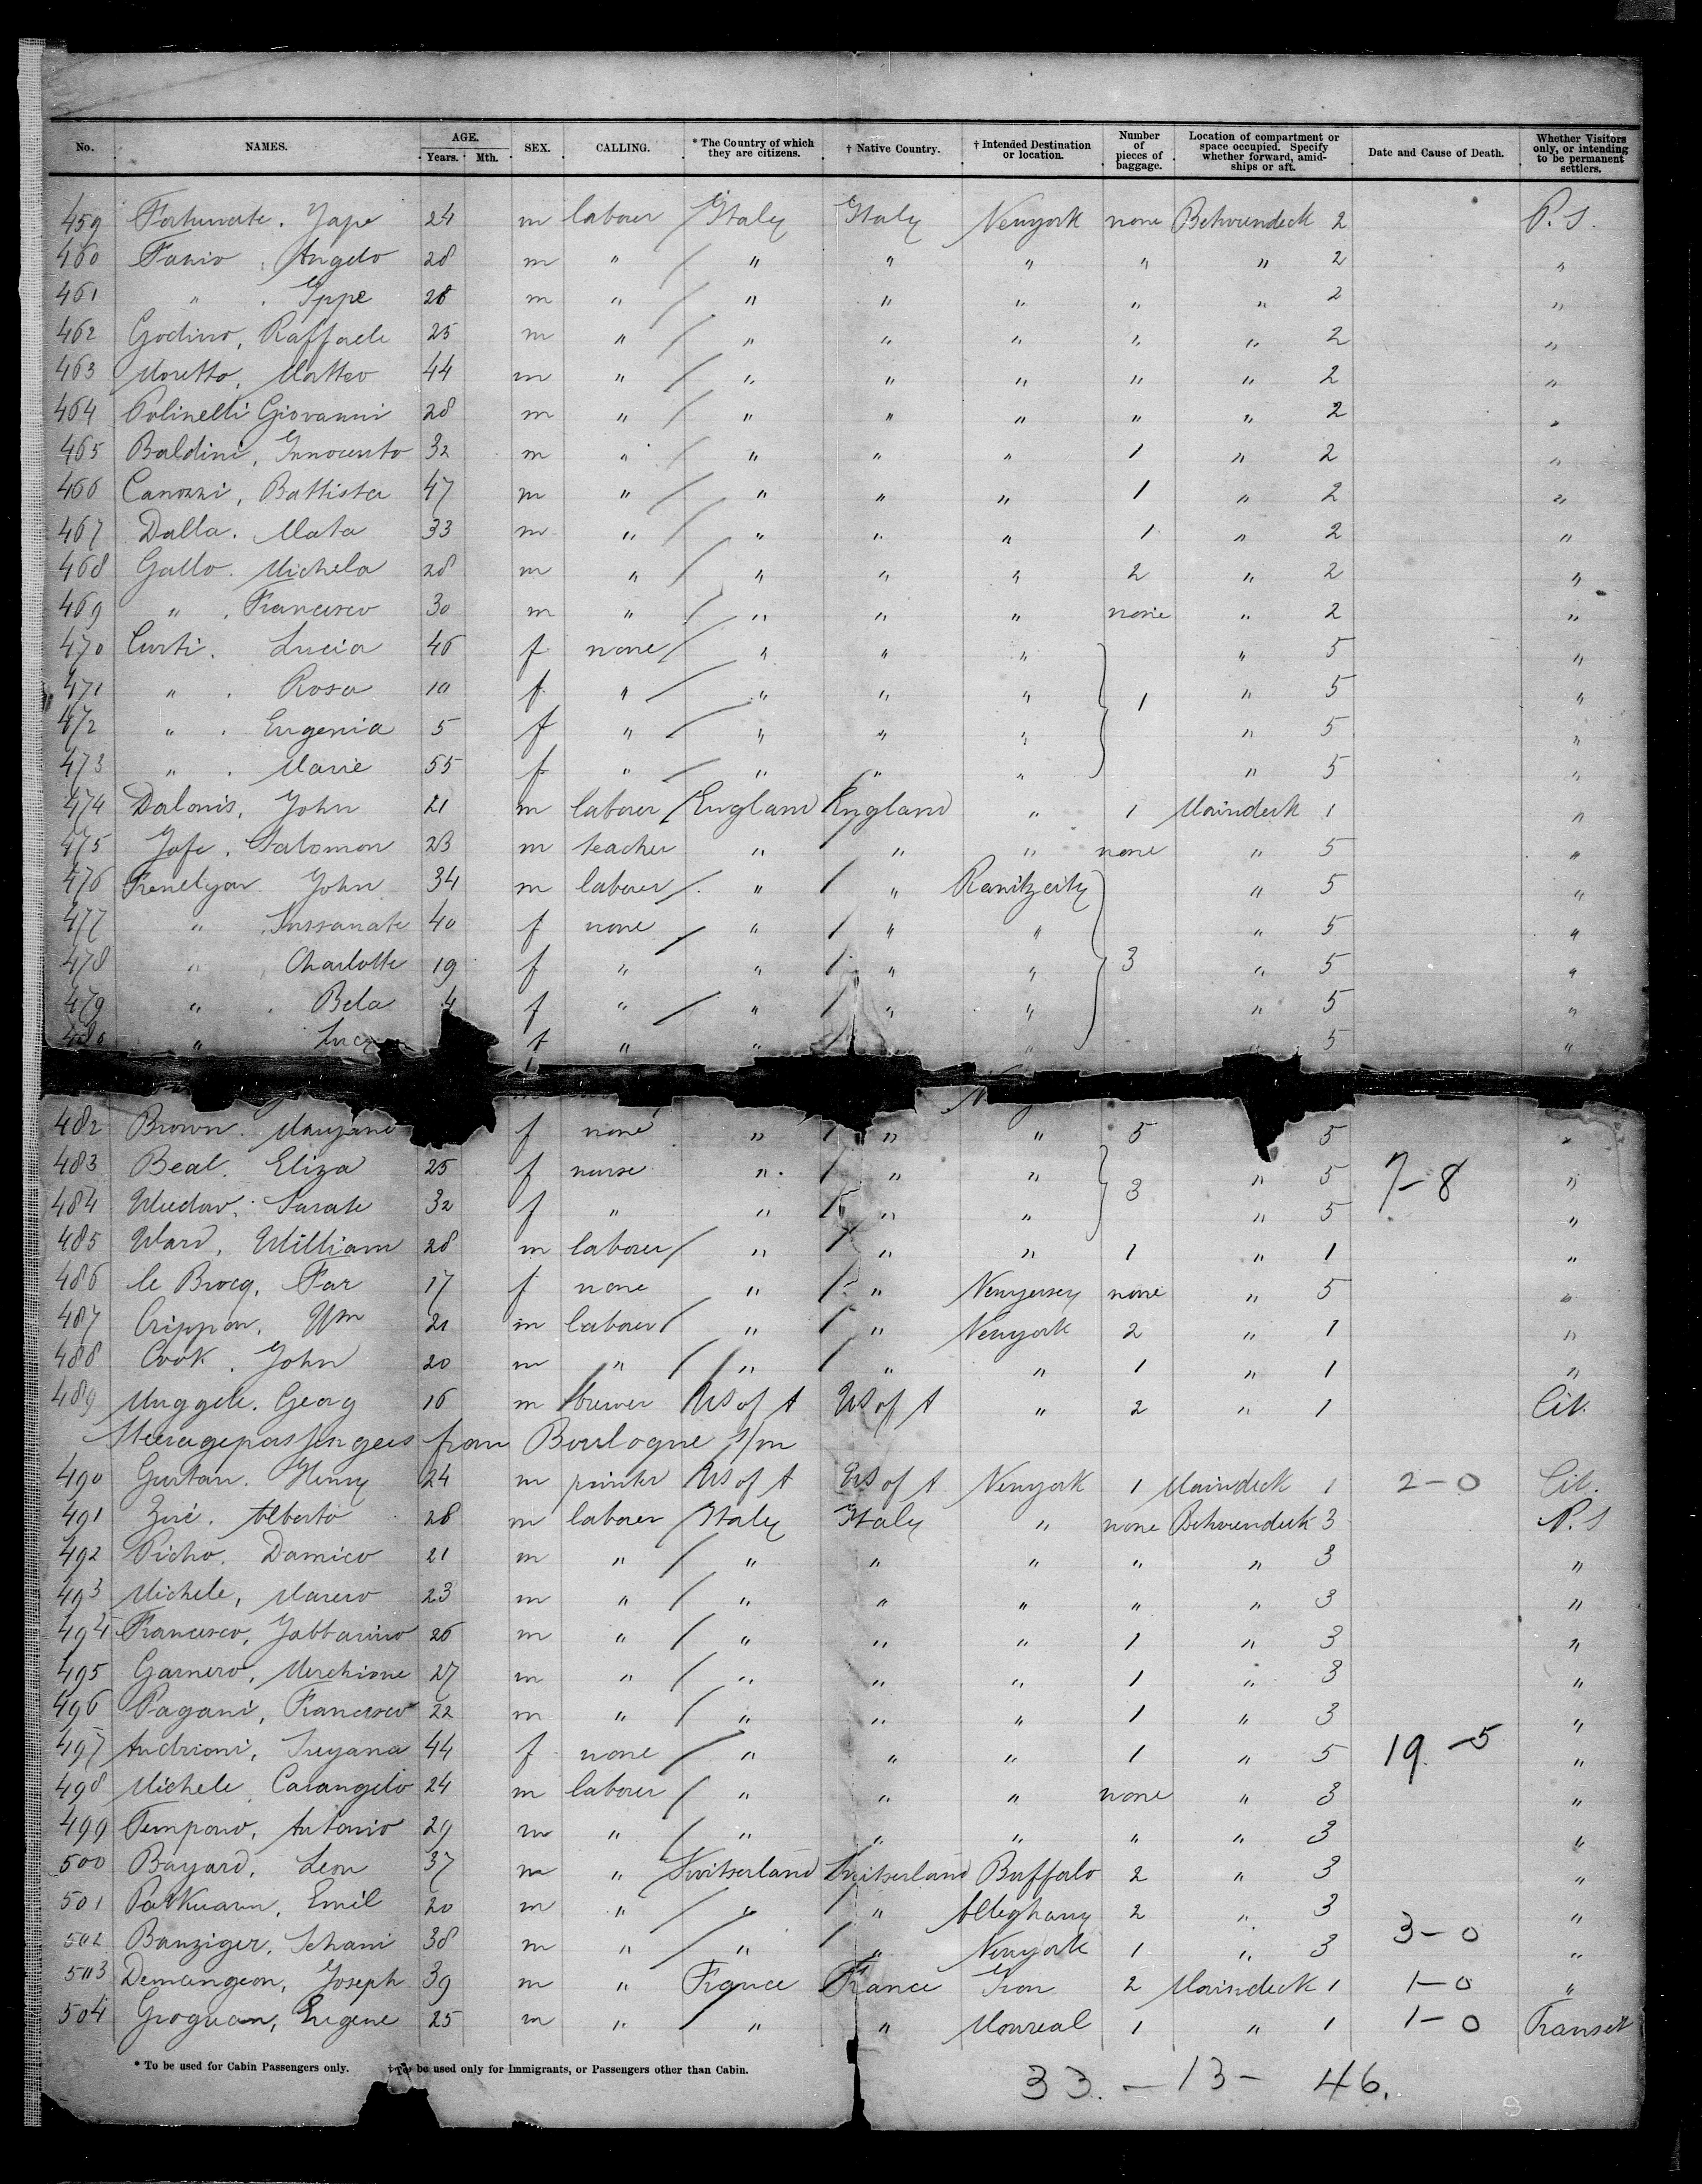 No. NAMES. AGE. Years. Mth. SEX. CALLING. * The Country of which they are citizens. † Native Country. † Intended Destination or location. Number of pieces of baggage. Location of compartment or space occupied. Specify whether forward, amidships or aft. Date and Cause of Death. Whether Visitors only, or intending to be permanent settlers.
459 Fortunate. 24 m laborer Italy Italy Newyork none Betweendeck 2 P. S.
460 Fanio Angelo 28 m " " " " " " 2 "
461 " . 28 m " " " " " " 2 "
462 Godino, Raffaele 25 m " " " " " " 2 "
463 Moretto, Matteo 44 m " " " " " " 2 "
464 Polinelli Giovanni 28 m " " " " " " 2 "
465 Baldini, Innocento 32 m " " " " 1 " 2 "
466 Canozzi, Battista 47 m " " " " 1 " 2 "
467 Dalla. Mata 33 m " " " " 1 " 2 "
468 Gallo. Michela 28 m " " " " 2 " 2 "
469 " . Francesco 30 m " " " " none " 2 "
470 Curti. Lucia 46 f none " " " " 5 "
471 " . Rosa 10 f " " " " 1 " 5 "
472 " . Eugenia 5 f " " " " " 5 "
473 " . Marie 55 f " " " " " 5 "
474 Dalonis, John 21 m laborer England England " 1 Maindeck 1 "
475 Jofe, Salomon 23 m teacher " " " none " 5 "
476 John 34 m laborer " " " 5 "
477 " 40 f none " " " " 5 "
478 " Charlotte 19 f " " " " 3 " 5 "
479 " . Bela 4 f " " " " " 5 "
480 " f " " " 5 "
482 Brown. Maryane f none " " " 5 5 "
483 Beal. Eliza 25 f nurse " " " " 5 7-8 "
484 Sarah 32 f " " " " 3 " 5 "
485 Ward, William 28 m laborer " " " 1 " 1 "
486 le Brocq, 17 f none " " Newyersey none " 5 "
487 Crippon, Wm 21 m laborer " " Newyork 2 " 1 "
488 Cook, John 20 m " " " " 1 " 1 "
489 Muggele. Georg 16 m brewer US of A US of A " 2 " 1 Cit.
Steeragepassengers from Boulogne s/m
490 Gurtan. Henry 24 m printer US of A US of A Newyork 1 Maindeck 1 2-0 Cit.
491 Alberto 28 m laborer Italy Italy " none Betweendeck 3 P. S
492 Picho. Damico 21 m " " " " " " 3 "
493 Michele, 23 m " " " " " " 3 "
494 Francesco, 26 m " " " " 1 " 3 "
495 Garnero, Merchione 27 m " " " " 1 " 3 "
496 Pagani, Francesco 22 m " " " " 1 " 3 "
497 Andrioni, 44 f none " " " 1 " 5 19-5 "
498 Michele, Carangelo 24 m laborer " " " none " 3 "
499 Antonio 29 m " " " " " " 3 "
500 Bayard, Leon 37 m " Switserland Switserland Buffalo 2 " 3 "
501 Emil 20 m " " " Alleghany 2 " 3 "
502 Banziger, 38 m " " " Newyork 1 " 3 3-0 "
503 Demangeon, Joseph 39 m " France France Iron 2 Maindeck 1 1-0 "
504 Eugene 25 m " " " Monreal 1 " 1 1-0 Transit
* To be used for Cabin Passengers only. † To be used only for Immigrants, or Passengers other than Cabin.
33. - 13 - 46.